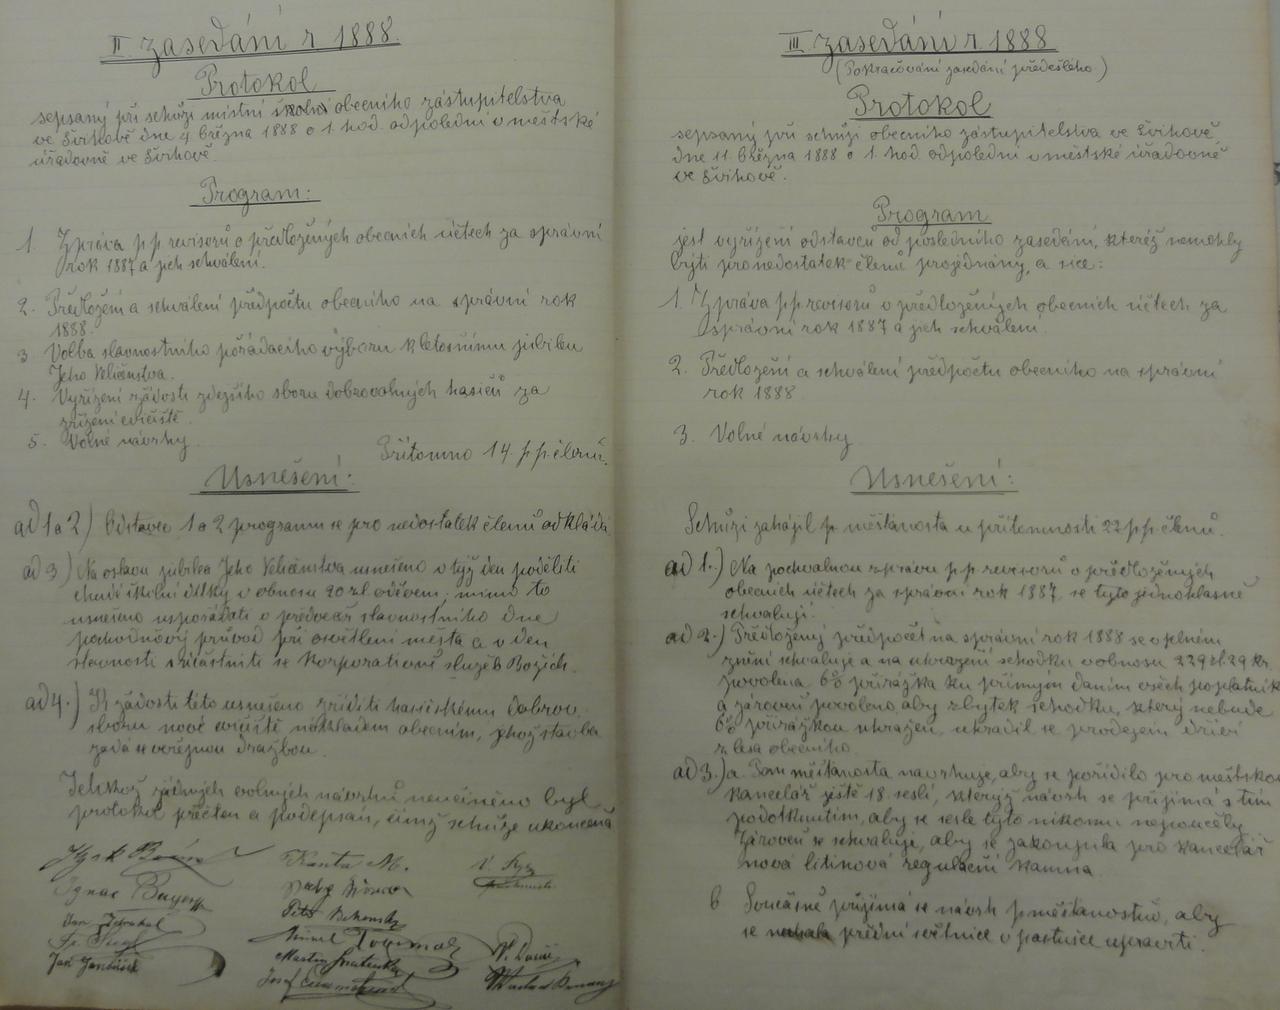 II. zasedání r 1888.
Protokol
sepsaný při schůzi místní školní obecního zástupitelstva
ve Švihově dne 4 března 1888 o 1. hod. odpolední v městské
úřadovně ve Švihově.
Program:
1. Zpráva p p revisorů o předložených obecních účtech za správní
rok 1887 a jich schválení.
2. Předložení a schválení předpočtu obecního na správní rok
1888.
3 Volba slavnostního pořádacího výboru k letošnímu jubileu
Jeho Veličenstva.
4. Vyřízení žádosti zdejšího sboru dobrovolných hasičů za
zřízení cvičiště.
5. Volné návrhy.
Přítomno 14. p p. členů.
Usnešení:
ad 1 a 2) Odstavec 1 a 2 programu se pro nedostatek členů odkládá
ad 3) Na oslavu jubilea Jeho Veličenstva usnešeno v týž den poděliti
chudé školní dítky v obnosu 20 zl. oděvem; mimo to
usnešeno uspořádati v předvečer slavnostního dne
pochodňový průvod při osvětlení města a v den
slavnosti súčastniti se korporativně služeb Božích.
ad 4.) K žádosti této usnešeno zříditi hasičskému dobrov.
sboru nové cvičiště nákladem obecním, jehož stavba
zadá se veřejnou dražbou.
Jelikož žádných volných návrhů neučiněno byl
protokol přečten a podepsán, čímž schůze ukončena
Ignac Bayer
Kanta M.
Martin
Josef
III zasedání r 1888
(Pokračování zasedání předešlého.)
Protokol
sepsaný při schůzi obecního zástupitelstva ve Švihově
dne 11. března 1888 o 1. hod. odpolední v městské úřadovně
ve Švihově.
Program
jest vyřízení odstavců od posledního zasedání, kteréž nemohly
býti pro nedostatek členů projednány, a sice:
1. Zpráva p p revisorů o předložených obecních účtech za
správní rok 1887 a jich schválení.
2. Předložení a schválení předpočtu obecního na správní
rok 1888
3. Volné návrhy
Usnešení:
Schůzi zahájil p. měšťanosta u přítomnosti 22 p p. členů.
ad 1.) Na pochvalnou zprávu p p. revisorů o předložených
obecních účtech za správní rok 1887, se tyto jednohlasně
schvalují.
ad 2.) Předložený předpočet na správní rok 1888 se v celném
znění schvaluje a na uhrazení schodku v obnosu 229 zl. 29 kr.
povolena 6% přirážka ku přímým daním všech poplatník
a zároveň povoleno, aby zbytek schodku, který nebude
6% přirážkou uhražen, uhradil se prodejem dříví
z lesa obecního.
ad 3.) a. Pan měšťanosta navrhuje, aby se pořídilo pro městskou
kancelář ještě 18 seslí, kterýž návrh se přijímá s tím
podotknutím, aby se sesle tyto nikomu nepůjčily
Zároveň se schvaluje, aby se zakoupila pro kancelář
nová litinová regulační kamna.
b Současně přijímá se návrh p. měšťanostův, aby
se přední světnice v pastušce upravila.